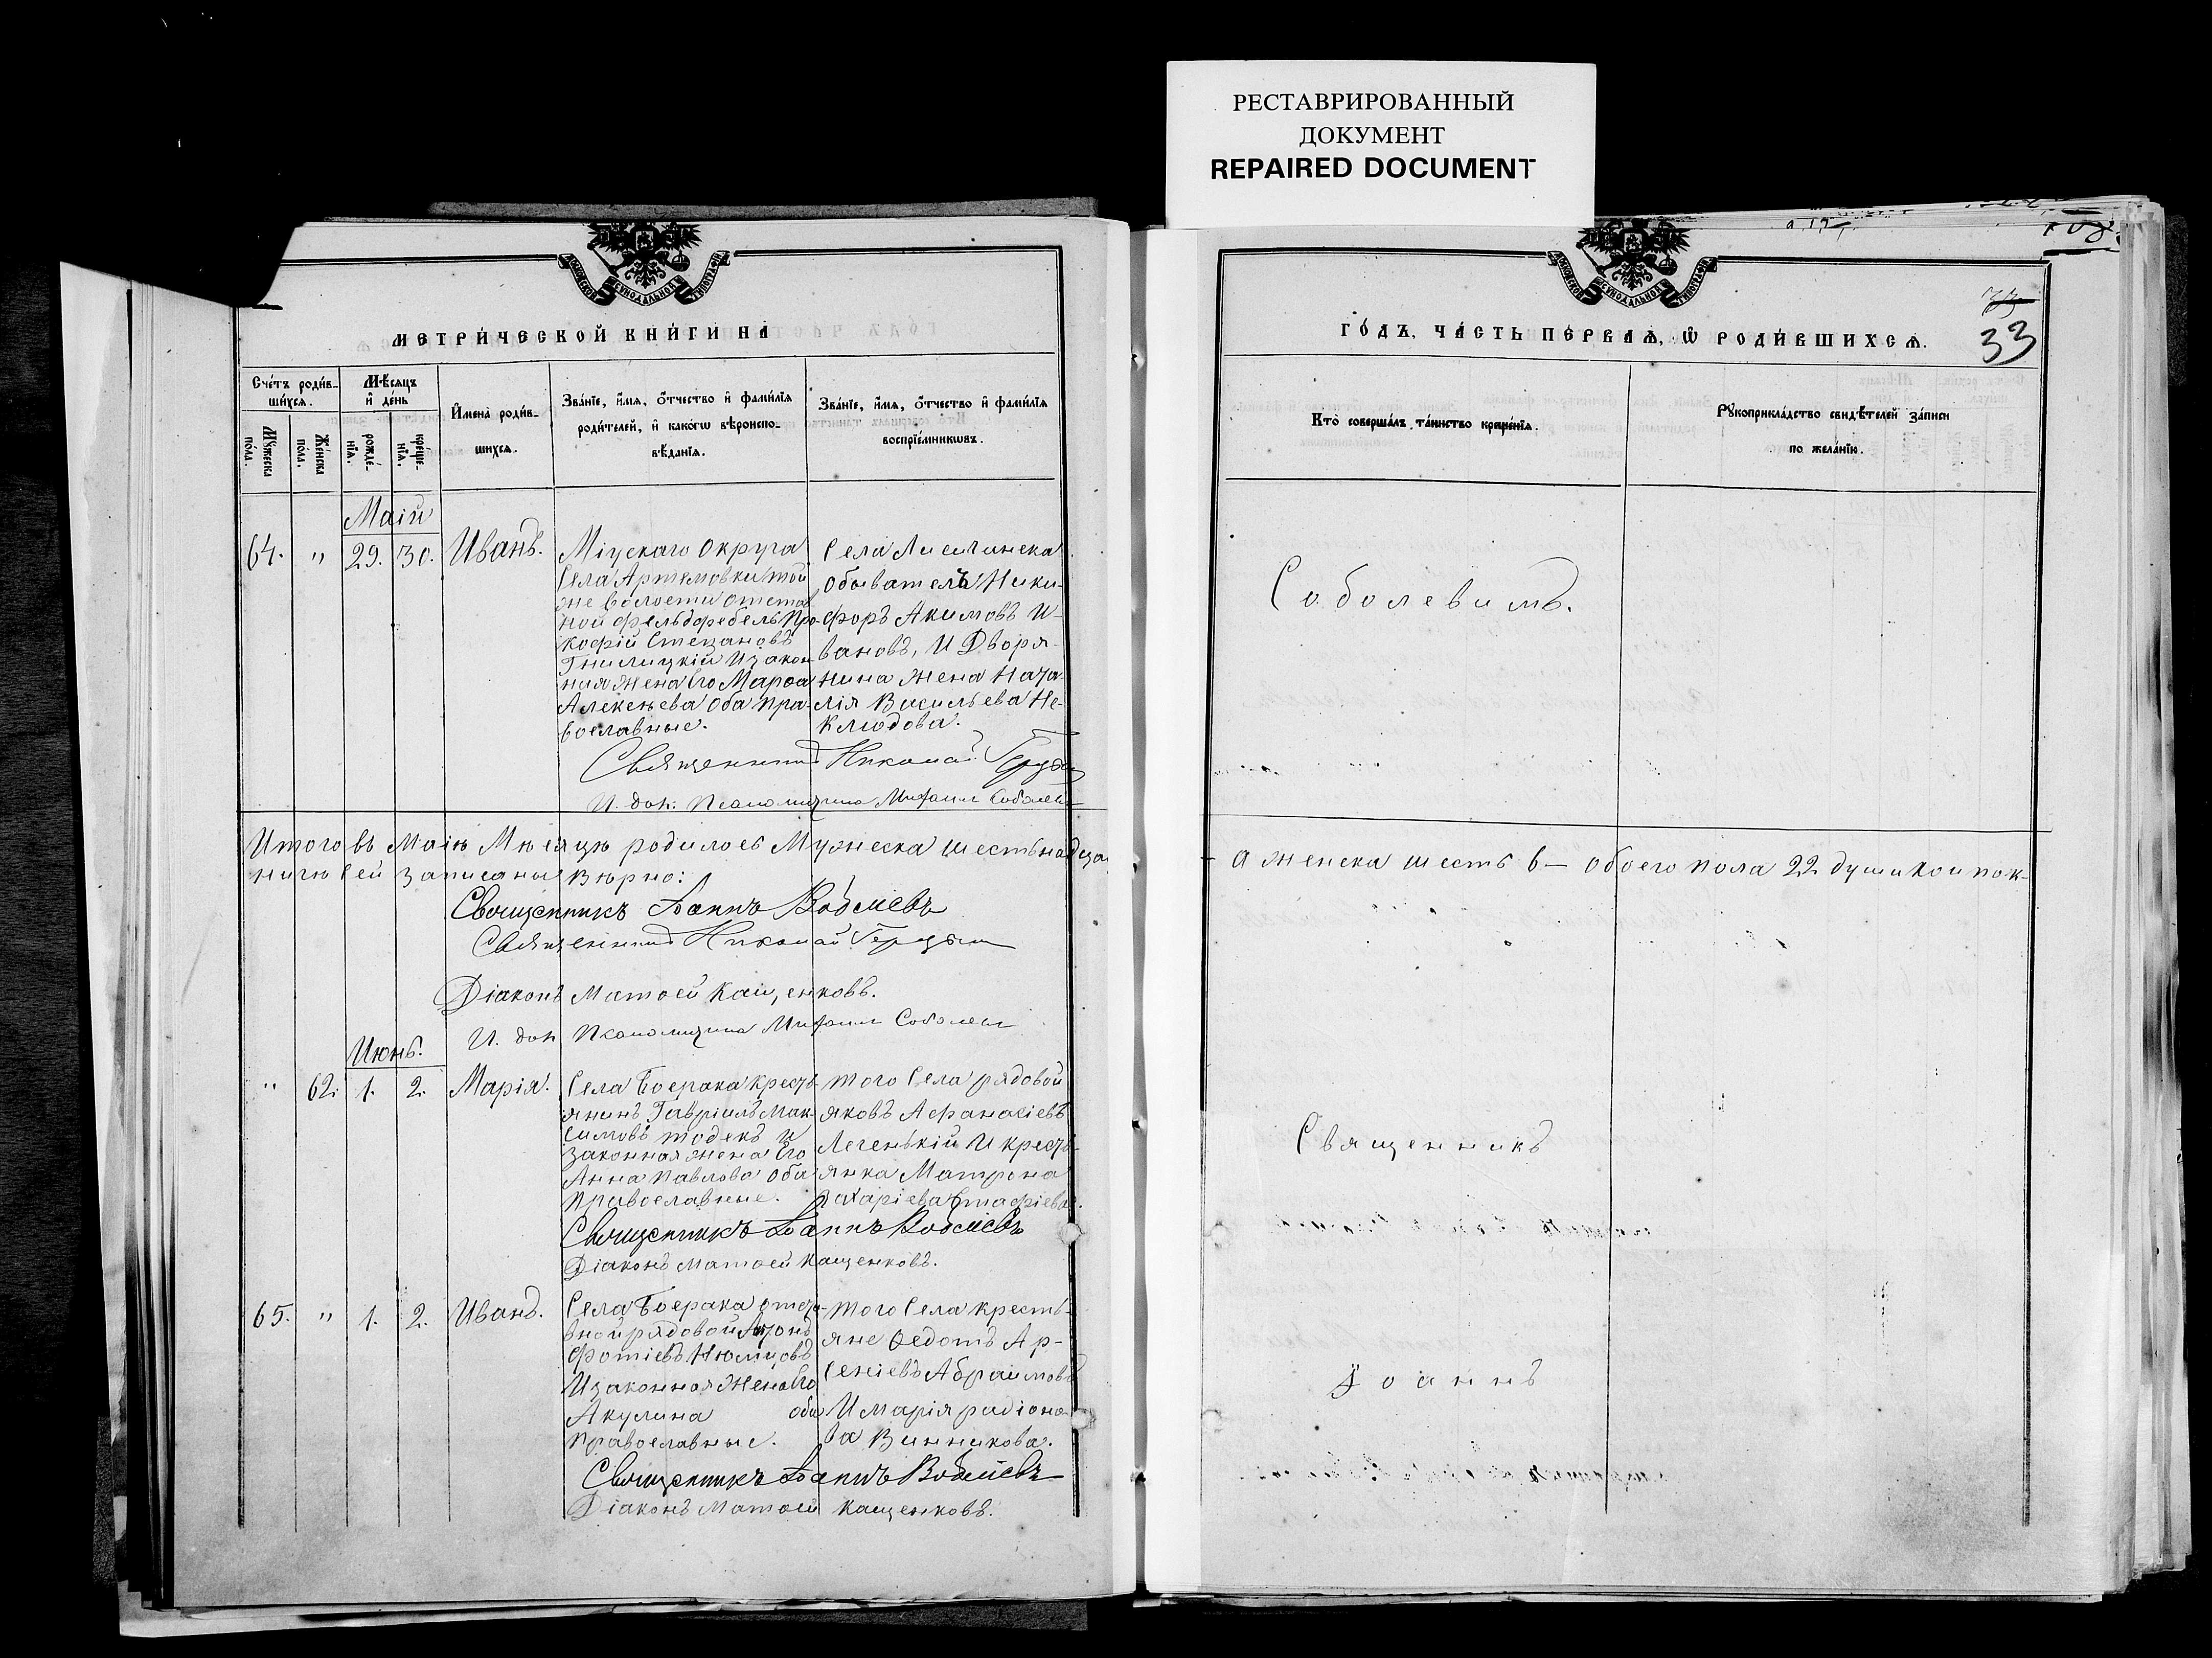 РЕСТАВРИРОВАННЫЙ
ДОКУМЕНТ
REPAIRED DOCUMENT
МОСКОВСКОЙ СѴНОДАЛЬНОЙ ТИПОГРАФІИ
МЕТРИ́ЧЕСКОЙ КНИ́ГИ НА
Сче́тъ роди́в-
ши́хсѧ.
Мꙋ́жеска
по́ла.
Же́нска
по́ла.
Мѣ́сѧцъ
и҆ де́нь
рожде́-
нїѧ.
креще́-
нїѧ.
И҆мена̀ роди́в-
шихсѧ.
Зва́нїе, и҆́мѧ, ѻ҆́тчество и҆ фами́лїѧ
роди́телей, и҆ како́гѡ вѣроиспо-
вѣ́данїѧ.
Зва́нїе, и҆́мѧ, ѻ҆́тчество и҆ фами́лїѧ
воспрїе́мникѡвъ.
Маій
64. " 29. 30. Иванъ.
Міускаго Округа
Села Артемовки той
же волости отстав
ной фельдфебель Про-
кофій Степановъ
Гнилицкій И закон
ная жена Его Марѳа
Алексѣева Оба пра-
вославные.
Села Лисичанска
обыватель Ники-
форъ Акимовъ И-
вановъ, И Дворя-
нина жена Ната
лія Васильева Не-
клюдова.
Священникъ Николай
И. дол: Псаломщика Михаил Соболев
Итого въ Маіѣ Мѣсяцѣ родилось Мужеска шестьнадцать
нигѣ сей записаны вѣрно:
Священникъ Іоаннъ
Священникъ Николай
Діаконъ Матѳей Кащенковъ.
И. дол Псаломщика Михаил Соболев
Июнь.
" 62. 1. 2. Марія.
Села Боерака кресть
янинъ Гавріилъ Мак-
симовъ и
законная жена Его
Анна Павлова оба
православные.
того Села рядовой
яковъ Афанасіевъ
Легенькій И кресть-
янка Матрона
Захаріева Естафіева.
Священникъ Іоаннъ
Діаконъ Матѳей Кащенковъ.
65. " 1. 2. Иванъ.
Села Боерака отста-
вной рядовой
Фотіевъ Нѣмцовъ
И законная Жена Его
Акулина оба
православные.
того Села кресть-
яне Ѳедотъ Ар-
сеніевъ Абраимовъ
И марія радіоно-
ва Винникова.
Священникъ Іоаннъ
Діаконъ Матѳей Кащенковъ.
МОСКОВСКОЙ СѴНОДАЛЬНОЙ ТИПОГРАФІИ
ГО́ДЪ, ЧА́СТЬ ПЕ́РВАѦ, Ѡ҆ РОДИ́ВШИХСѦ.
33
Кто̀ соверша́лъ та́инство креще́нїѧ.
Рꙋкоприкла́дство свидѣ́телей за́писи
по жела́нїю.
Соболевимъ.
а женска шесть 6 — обоего пола 22 души кои по к-
Священникъ
Іоаннъ